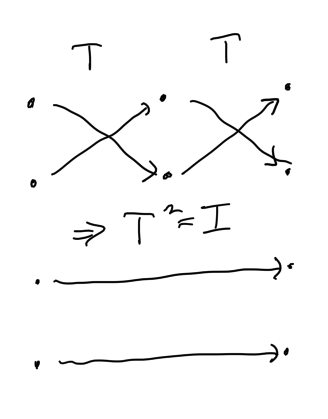 T T
⇒ T² = I